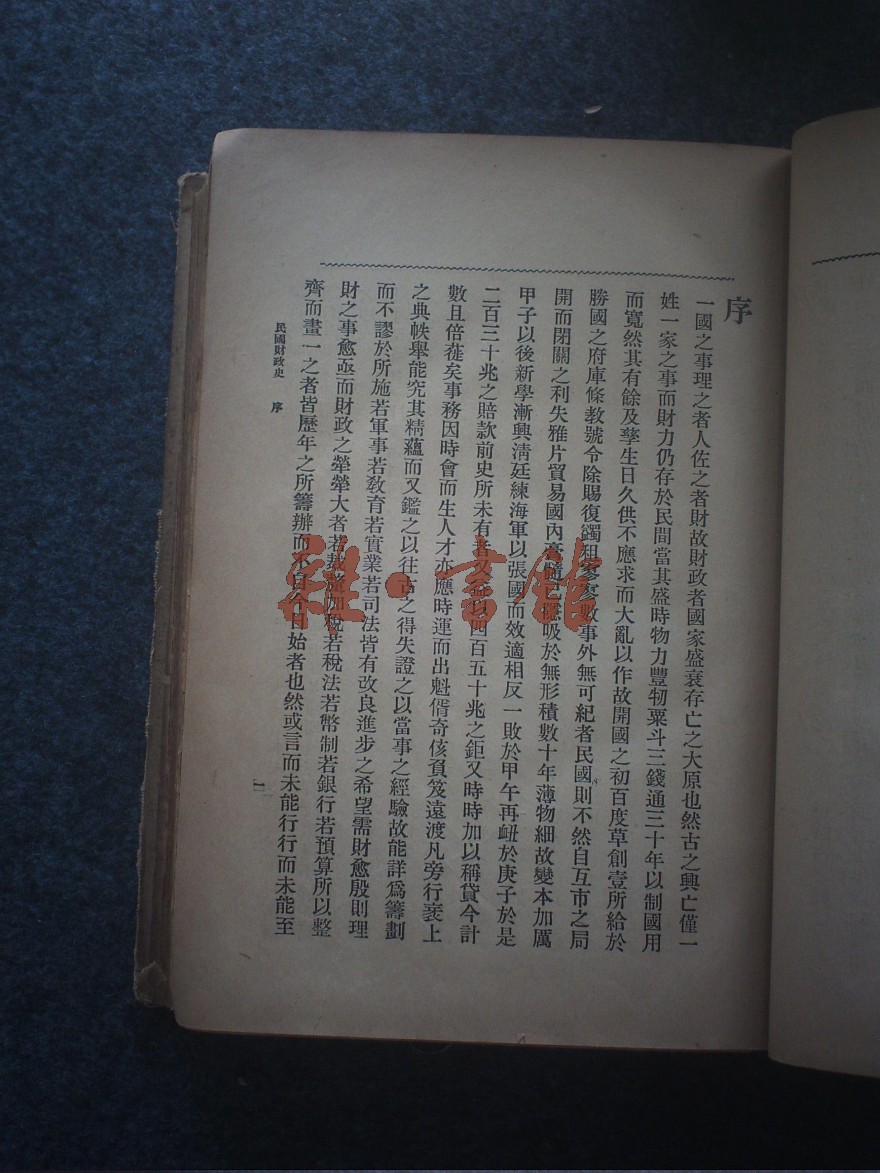 序
一國之事理之者人佐之者財故財政者國家盛衰存亡之大原也然古之興亡僅一
姓一家之事而財力仍存於民間當其盛時物力豐牣粟斗三錢通三十年以制國用
而寬然其有餘及孳生日久供不應求而大亂以作故開國之初百度草創壹所給於
勝國之府庫條教號令除賜復蠲租寥寥數事外無可紀者民國則不然自互市之局
開而閉關之利失雅片貿易國內膏髓已隱吸於無形積數十年薄物細故變本加厲
甲子以後新學漸興淸廷練海軍以張國而效適相反一敗於甲午再衂於庚子於是
二百三十兆之賠款前史所未有者又益以四百五十兆之鉅又時時加以稱貸今計
數且倍蓰矣事務因時會而生人才亦應時運而出魁偦奇侅負笈遠渡凡旁行衺上
之典帙舉能究其精蘊而又鑑之以往古之得失證之以當事之經驗故能詳爲籌劃
而不謬於所施若軍事若敎育若實業若司法皆有改良進步之希望需財愈殷則理
財之事愈亟而財政之犖犖大者若裁釐加稅若稅法若幣制若銀行若預算所以整
齊而畫一之者皆歷年之所籌辦而不自今日始者也然或言而未能行行而未能至
民國財政史 序
一
雜·書館